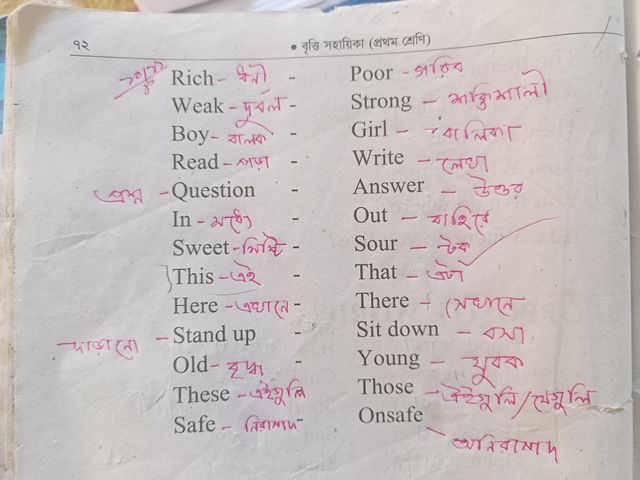 ১২ • বৃত্তি সহায়িকা (প্রথম শ্রেণি)
Rich - ধনী - Poor - গরিব
Weak - দুর্বল - Strong - শক্তিশালী
Boy - বালক - Girl - বালিকা
Read - পড়া - Write - লেখা
প্রশ্ন - Question - Answer - উত্তর
In - মধ্যে - Out - বাহিরে
Sweet - মিষ্টি - Sour - টক
This - এই - That - এটা
Here - এখানে - There - সেখানে
দাড়ানো - Stand up - Sit down - বসা
Old - বৃদ্ধ - Young - যুবক
These - এইগুলি - Those - ঐইগুলি/যেগুলি
Safe - নিরাপদ - Onsafe - অনিরাপদ